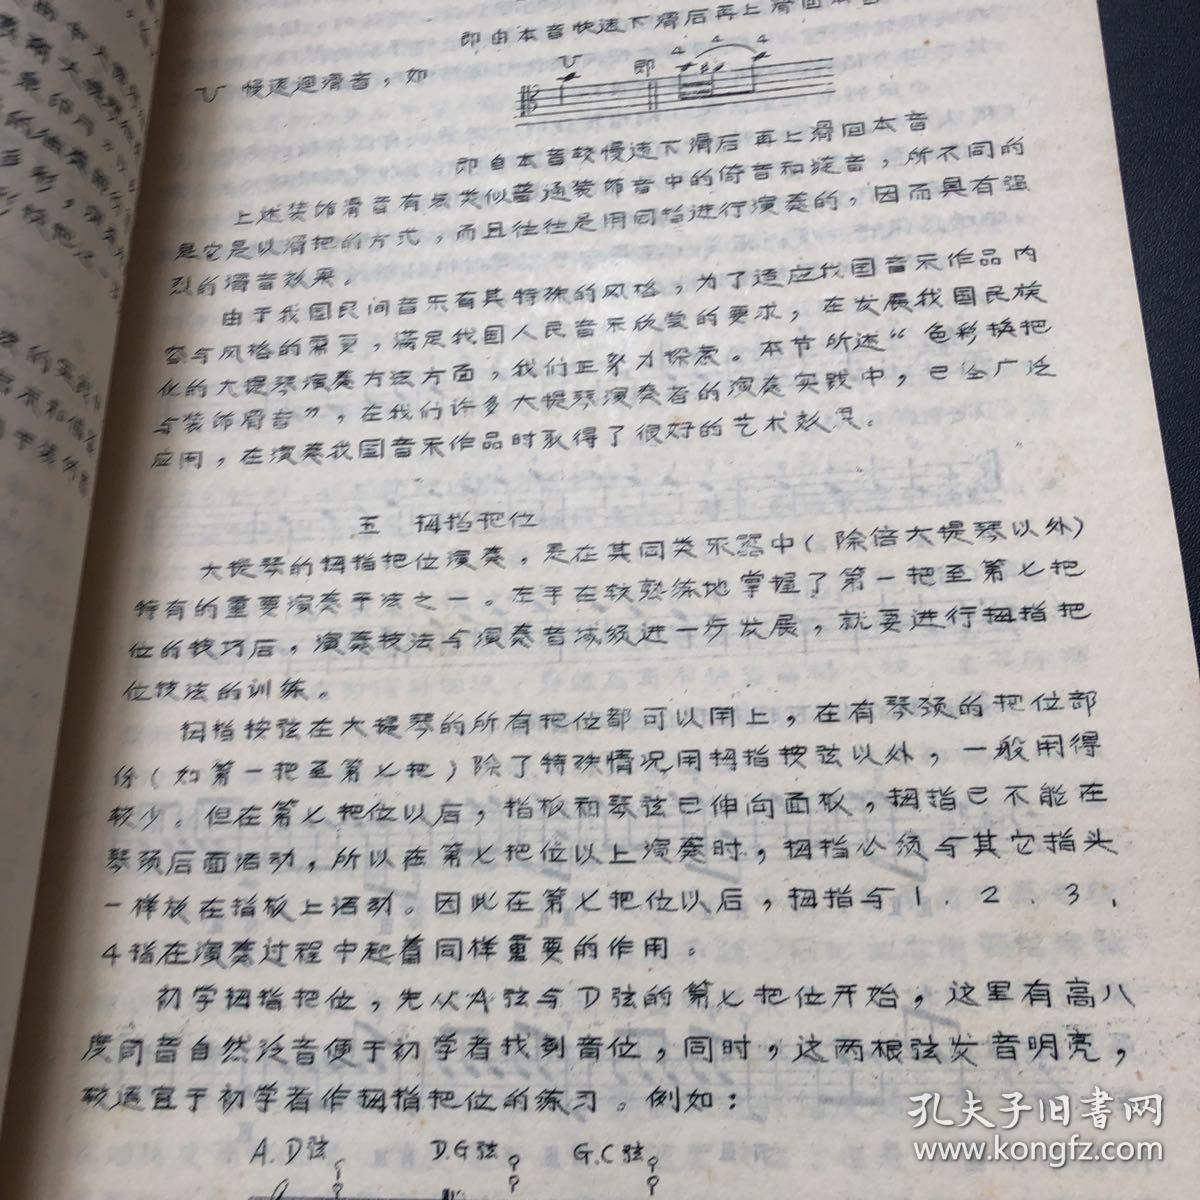 即由本音快速下滑后再上滑回本音
慢速迴滑音，如
4 4 4
即
即自本音较慢速下滑后再上滑回本音
上述装饰滑音有些类似普通装饰音中的倚音和旋音，所不同的
是它是以滑把的方式，而且往往是用同指进行演奏的，因而具有强
烈的滑音效果。
由于我国民间音乐有其特殊的风格，为了适应我国音乐作品内
容与风格的需要，满足我国人民音乐欣赏的要求，在发展我国民族
化的大提琴演奏方法方面，我们正努力探索。本节所述“色彩换把
与装饰滑音”，在我们许多大提琴演奏者的演奏实践中，已在广泛
应用，在演奏我国音乐作品时取得了很好的艺术效果。
五 拇指把位
大提琴的拇指把位演奏，是在其同类乐器中（除倍大提琴以外）
特有的重要演奏手法之一。左手在较熟练地掌握了第一把至第七把
位的技巧后，演奏技法与演奏音域须进一步发展，就要进行拇指把
位技法的训练。
拇指按弦在大提琴的所有把位都可以用上，在有琴颈的把位部
份（如第一把至第七把）除了特殊情况用拇指按弦以外，一般用得
较少。但在第七把位以后，指板和琴弦已伸向面板，拇指已不能在
琴颈后面活动，所以在第七把位以上演奏时，拇指必须与其它指头
一样放在指板上活动。因此在第七把位以后，拇指与1．2．3．
4指在演奏过程中起着同样重要的作用。
初学拇指把位，先从A弦与D弦的第七把位开始，这里有高八
度同音自然泛音便于初学者找到音位，同时，这两根弦发音明亮，
较适宜于初学者作拇指把位的练习。例如：
A.D弦 D.G弦 G.C弦
孔夫子旧书网
www.kongfz.com